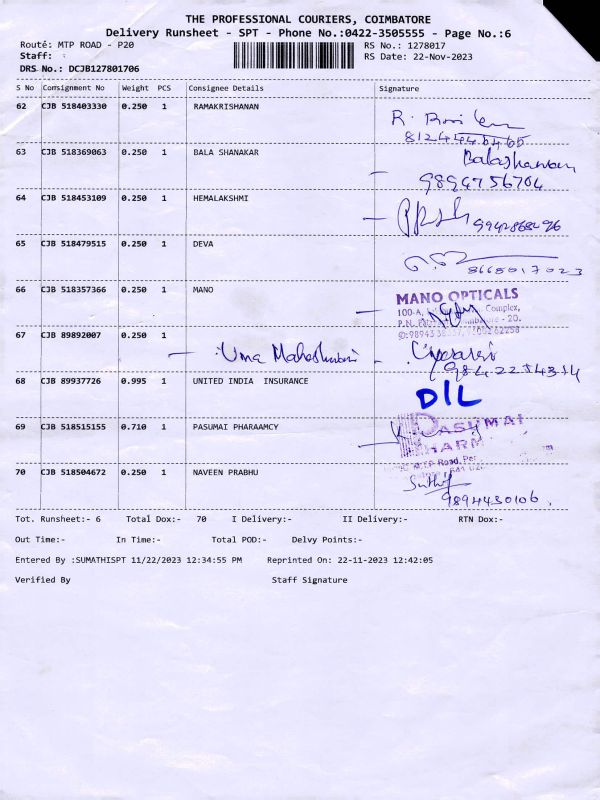 THE PROFESSIONAL COURIERS, COIMBATORE
Delivery Runsheet - SPT - Phone No.:0422-3505555 - Page No.:6
Route: MTP ROAD - P20
RS No.: 1278017
Staff: :
RS Date: 22-Nov-2023
DRS No.: DCJB127801706
S No Consignment No Weight PCS Consignee Details Signature
62 CJB 518403330 0.250 1 RAMAKRISHANAN
63 CJB 518369063 0.250 1 BALA SHANAKAR
Balashankar
9894756704
64 CJB 518453109 0.250 1 HEMALAKSHMI
9942868496
65 CJB 518479515 0.250 1 DEVA
8668017023
66 CJB 518357366 0.250 1 MANO
MANO OPTICALS
100-A, Complex,
67 CJB 89892007 0.250 1
Uma Maheshwari
9842254314
68 CJB 89937726 0.995 1 UNITED INDIA INSURANCE
DIL
69 CJB 518515155 0.710 1 PASUMAI PHARAAMCY
M.T.P Road,
70 CJB 518504672 0.250 1 NAVEEN PRABHU
9894430106
Tot. Runsheet:- 6 Total Dox:- 70 I Delivery:- II Delivery:- RTN Dox:-
Out Time:- In Time:- Total POD:- Delvy Points:-
Entered By :SUMATHISPT 11/22/2023 12:34:55 PM Reprinted On: 22-11-2023 12:42:05
Verified By Staff Signature